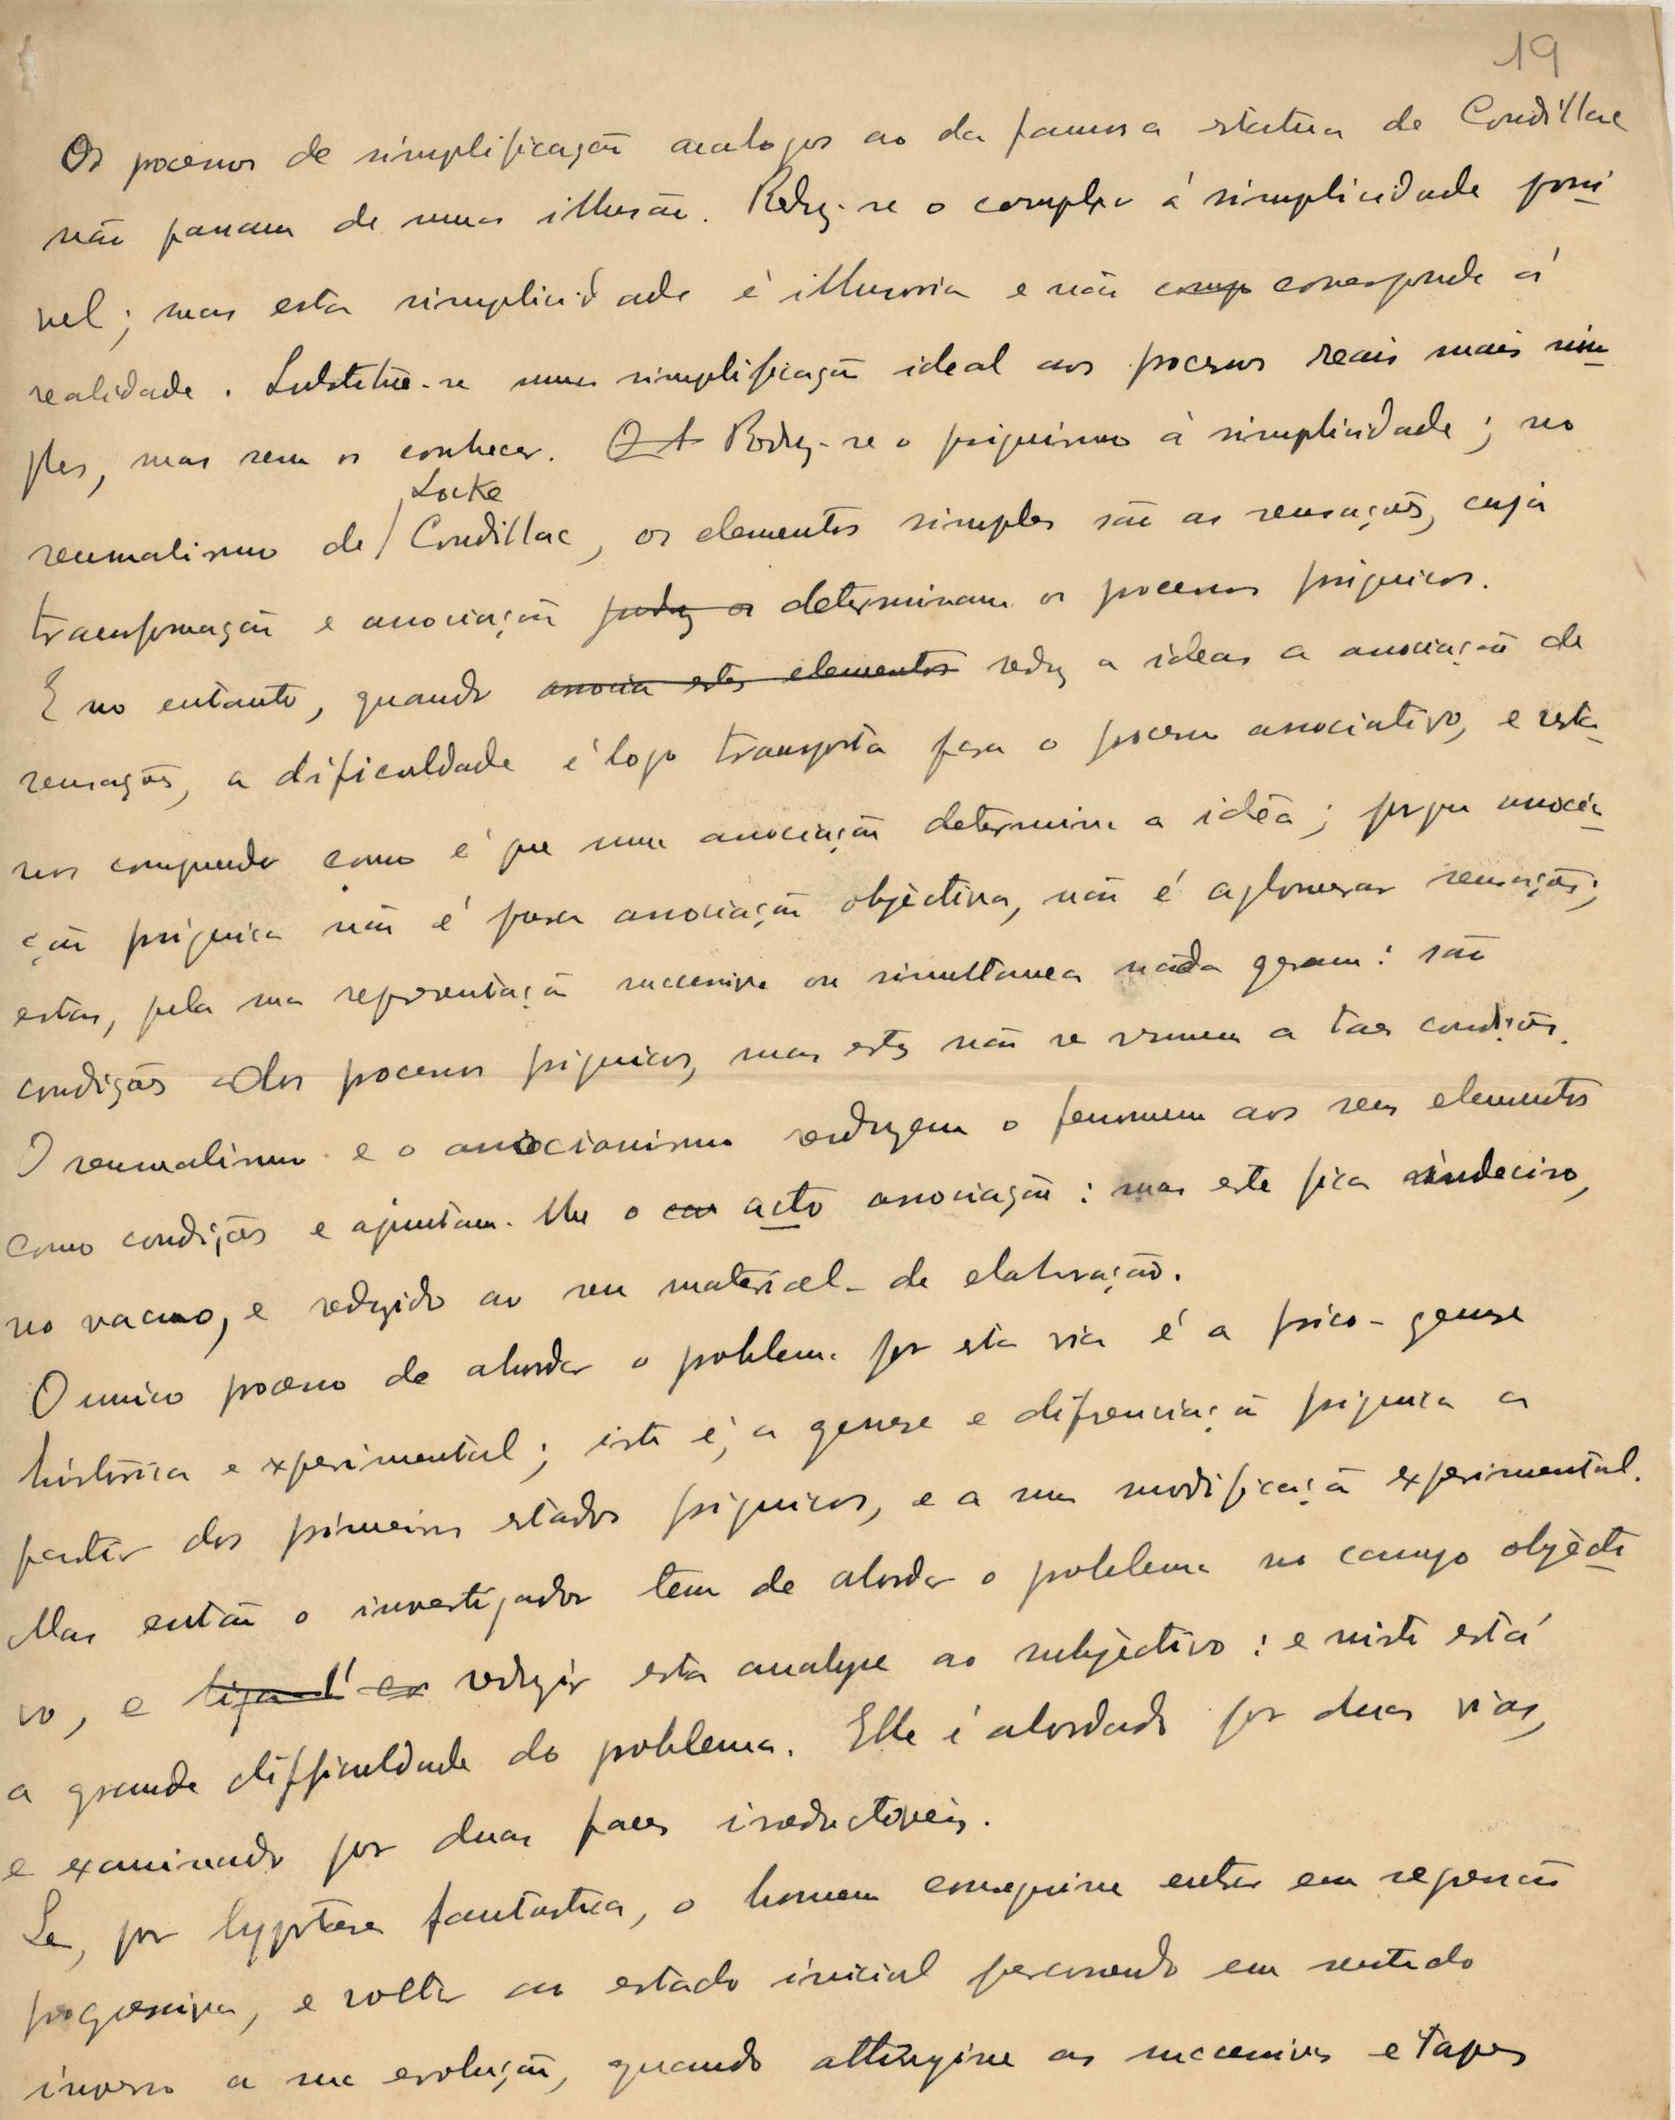 19
Os processos de simplificação analogos ao da famosa statua de Condillac
não passam de uma illusão. Reduz-se o complexo á simplicidade possi
vel; mas esta simplicidade é illusoria e não comp corresponde á
realidade. Substitue-se uma simplificação ideal aos processos reais mais sim
ples, mas sem os conhecer. Reduz-se o psiquismo á simplicidade; no
Locke
sensualismo de Condillac, os elementos simples são as sensações, cuja
transformação e associação determinam os processos psiquicos.
E no entanto, quando associa estes elementos reduz a ideas a associação de
sensações, a dificuldade é logo transposta para o processo associativo, e resta
nos comprender como é que uma associação determina a idêa; porque associa
ção psiquica não é pura associação objectiva, não é aglomerar sensações;
estas, pela sua representação successiva ou simultanea nada geram: são
condições dos processos psiquicos, mas estes não se resumem a taes condições.
O sensualismo e o associonismo reduzem o fenomeno aos seus elementos
como condições e ajuntam-lhe o acto associação: mas este fica indeciso,
no vacuo, e reduzido ao seu material de elaboração.
O unico processo de abordar o problema por esta via é a psico-genese
historica e experimental; isto é, a genese e difrenciação psiquica a
partir dos primeiros estados psiquicos, e a sua modificação experimental.
Mas então o investigador tem de abordar o problema no campo objecti
vo, e reduzir esta analyse ao subjectivo: e nisto está
a grande difficuldade do problema. Elle é abordado por duas vias,
e examinado por duas faces irreductiveis.
Se, por hypotese fantastica, o homem conseguisse entrar em regressão
progressiva, e voltar ao estado inicial percorrendo em sentido
inverso a sua evolução, quando attingisse as successivas etapes